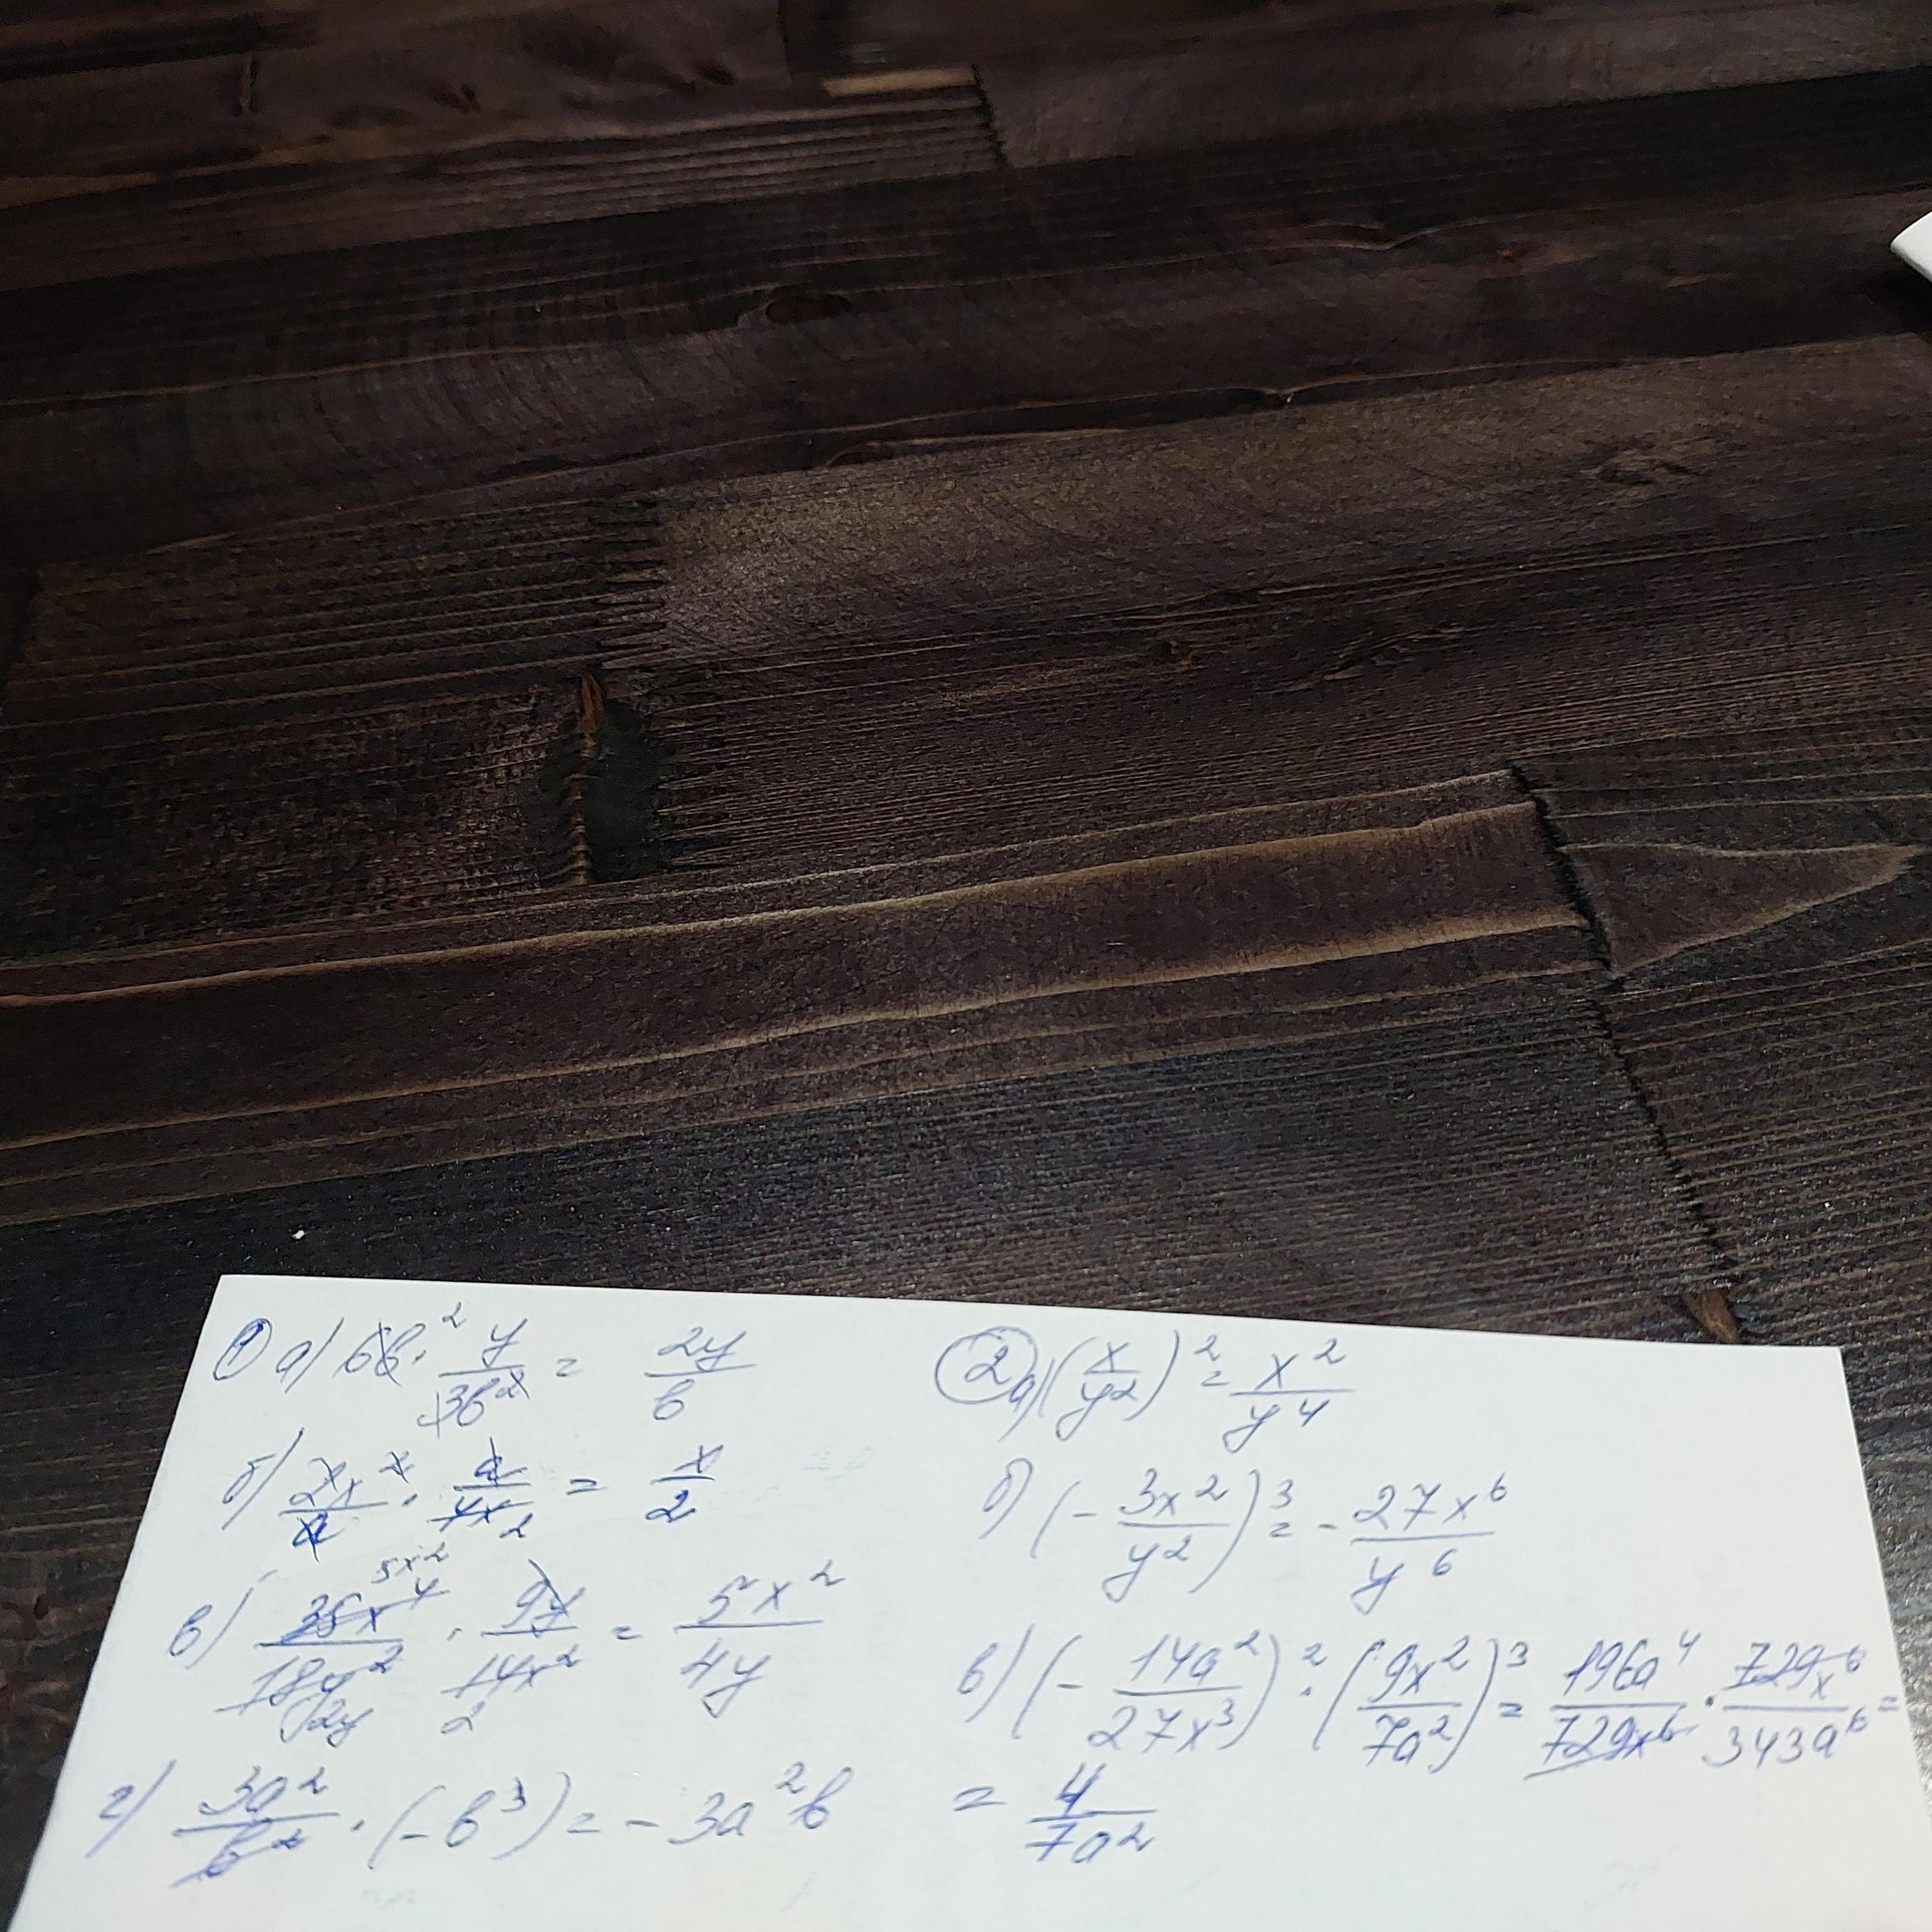 ① а) 6в · y/3в² = 2y/в
б) 2x²/a · a/4x = x/2
в) 35x⁴/18y² · 9y/14x² = 5x²/4y
г) 3a²/в² · (-в³) = -3a²в
② а) (x/y²)² = x²/y⁴
б) (-3x²/y²)³ = -27x⁶/y⁶
в) (-14a²/27x³)² · (9x²/7a²)³ = 196a⁴/729x⁶ · 729x⁶/343a⁶ =
= 4/7a²